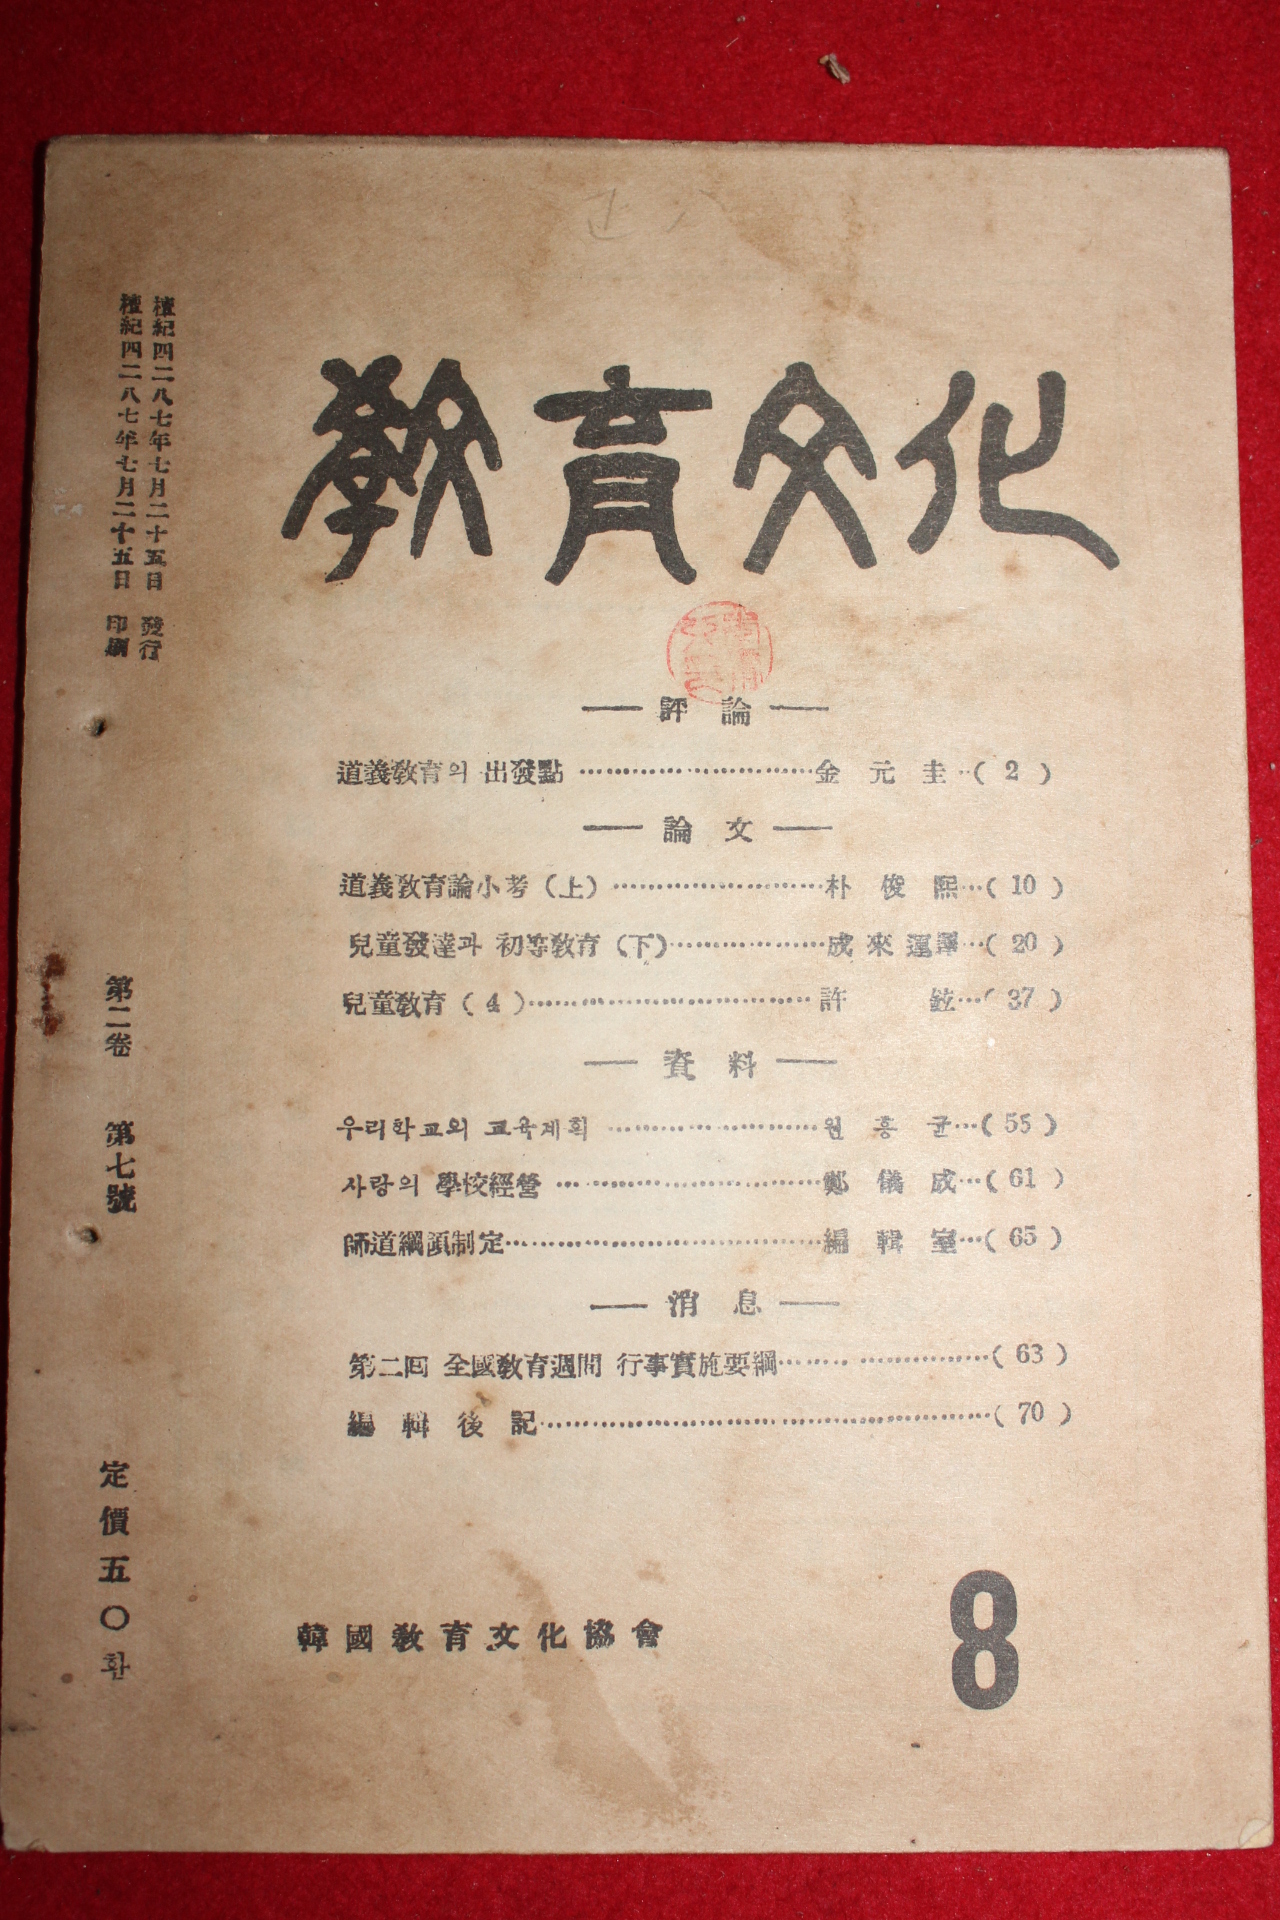 教育文化
檀紀四二八七年七月二十五日 發行
檀紀四二八七年七月二十五日 印刷
第二卷 第七號
定價五〇환
── 評論 ──
道義敎育의 出發點 ………………………金元圭…( 2 )
── 論文 ──
道義敎育論小考 (上) ……………………朴俊熙…( 10 )
兒童發達과 初等敎育 (下)………………成來運譯…( 20 )
兒童敎育 ( 4 )……………………………許鉉…( 37 )
── 資料 ──
우리학교의 교육계획 ……………………원흥균…( 55 )
사랑의 學校經營 …………………………鄭儀成…( 61 )
師道綱領制定………………………………編輯室…( 65 )
── 消息 ──
第二回 全國敎育週間 行事實施要綱……………………( 63 )
編輯後記……………………………………………( 70 )
韓國敎育文化協會
8